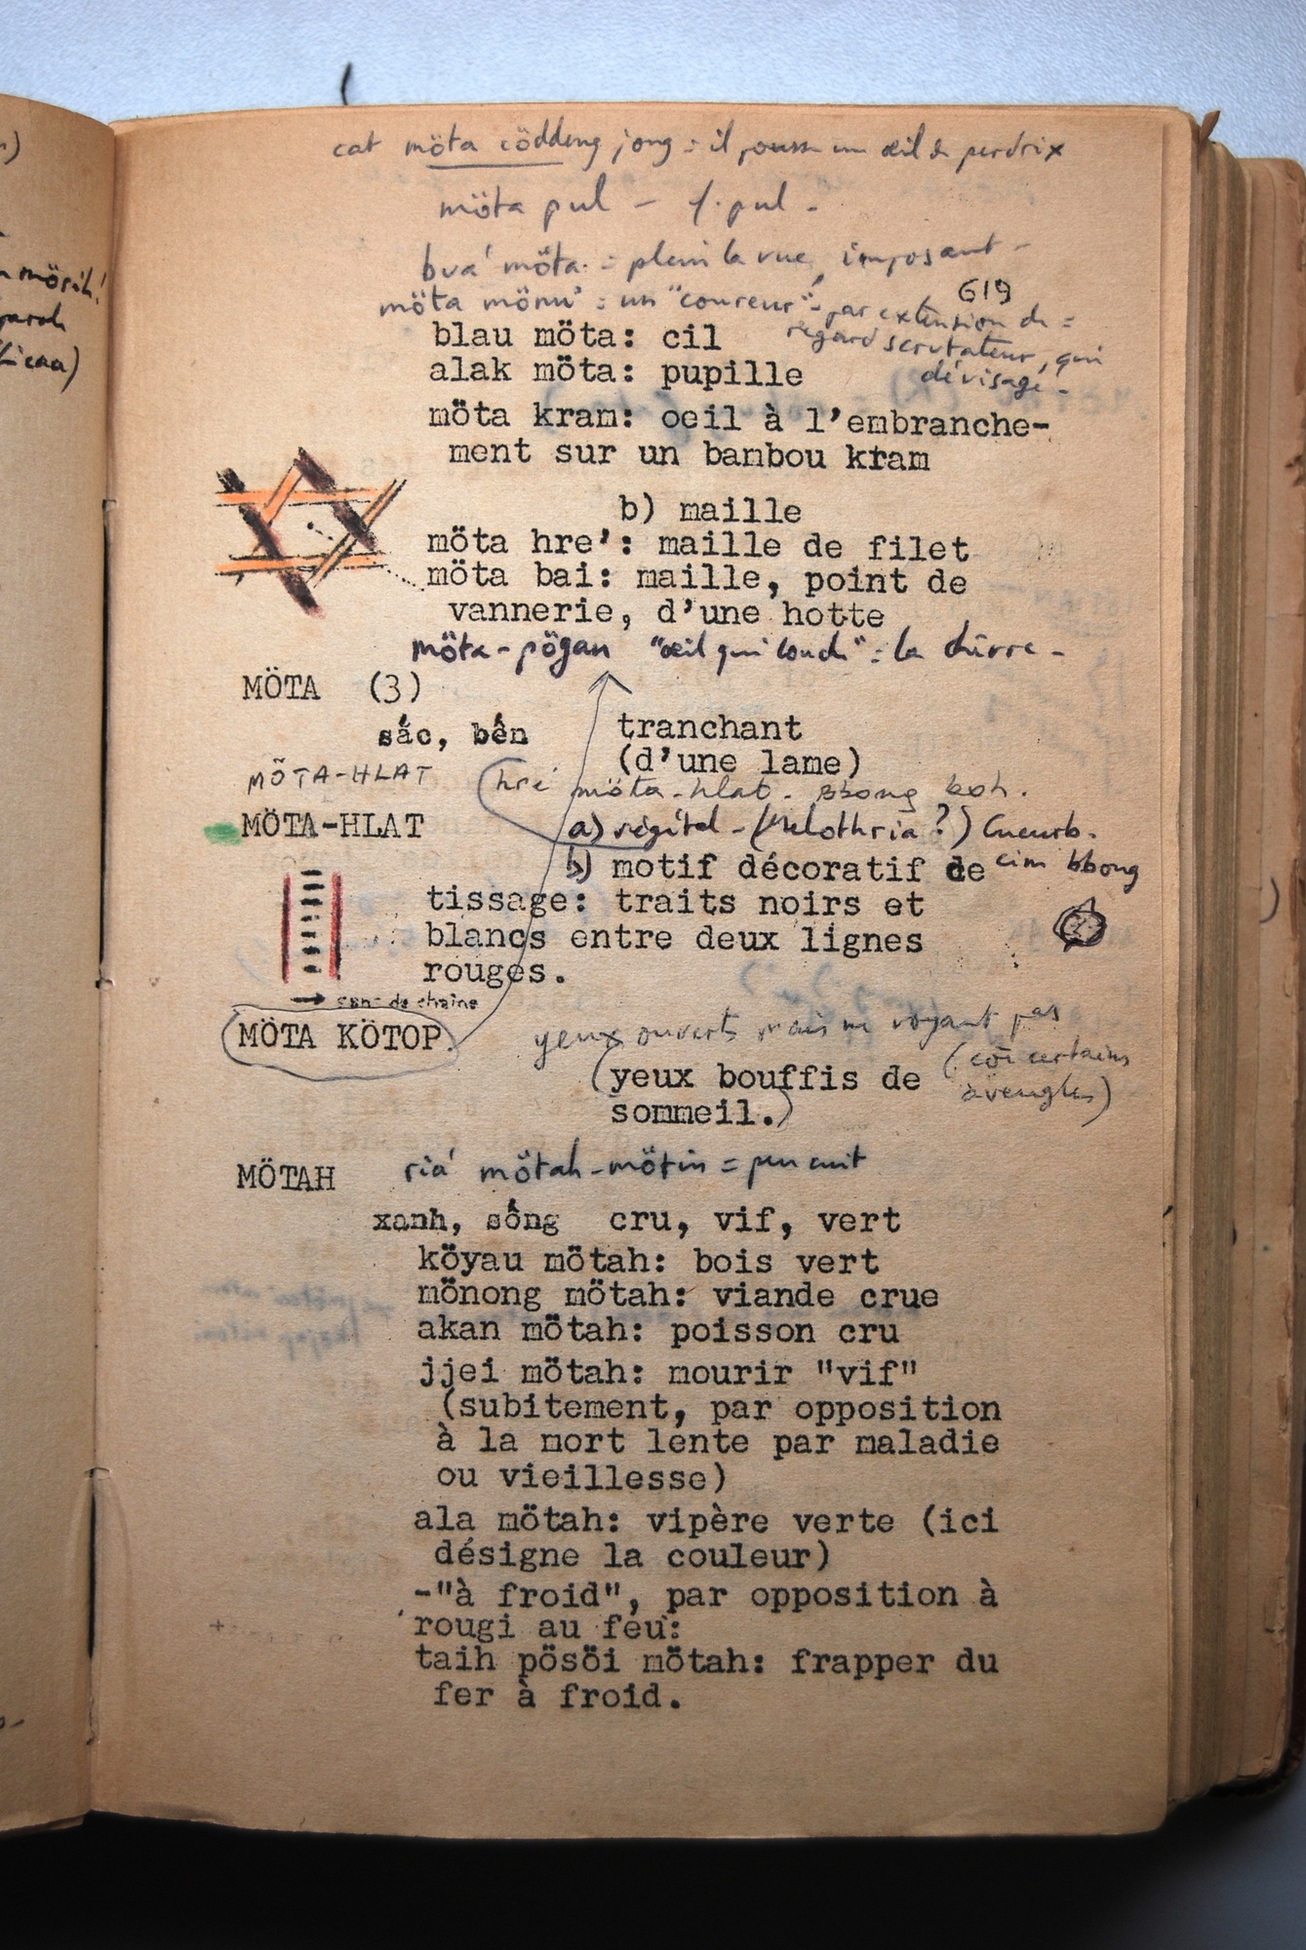 cat möta cöddeng jong = il pousse un œil de perdrix
möta pul - f. pul -
bva' möta = plein la vue, imposant -
möta mönu' = un "coureur" - par extension de =
regard scrutateur, qui
dévisage -
619
blau möta: cil
alak möta: pupille
möta kram: oeil à l'embranche-
ment sur un bambou kram
b) maille
möta hre': maille de filet
möta bai: maille, point de
vannerie, d'une hotte
möta-pögan "œil qui louche" = la
MÖTA (3)
sắc, bén tranchant
(d'une lame)
MÖTA-HLAT (hré möta-hlat - bbong koh.
MÖTA-HLAT a) végétal - (Melothria ?) Cucurb.
b) motif décoratif de cim bbong
tissage: traits noirs et
blancs entre deux lignes
rouges.
sens de chaîne
MÖTA KÖTOP. yeux ouverts mais ne voyant pas
(yeux bouffis de (côi certains
sommeil.) aveugles)
MÖTAH ria' mötah-mötin = peu cuit
xanh, sống cru, vif, vert
köyau mötah: bois vert
mönong mötah: viande crue
akan mötah: poisson cru
jjei mötah: mourir "vif"
(subitement, par opposition
à la mort lente par maladie
ou vieillesse)
ala mötah: vipère verte (ici
désigne la couleur)
-"à froid", par opposition à
rougi au feu:
taih pösöi mötah: frapper du
fer à froid.